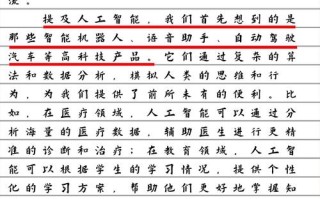 漫。
提及人工智能，我们首先想到的是
那些智能机器人、语音助手、自动驾驶
汽车等高科技产品。它们通过复杂的算
法和数据分析，模拟人类的思维和行
为，为我们提供了前所未有的便利。比
如，在医疗领域，人工智能可以通过分
析海量的医疗数据，辅助医生进行更精
准的诊断和治疗；在教育领域，人工智
能可以根据学生的学习情况，提供个性
化的学习方案，帮助他们更好地掌握知